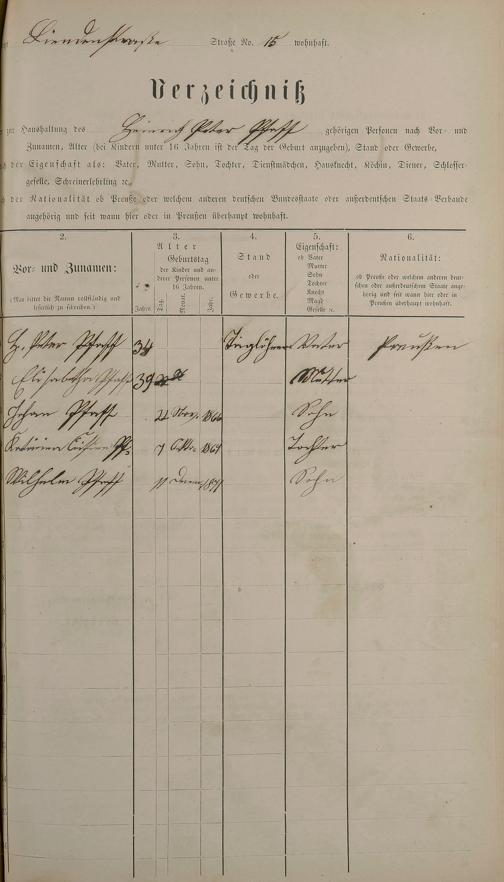 Straße No. 15 wohnhaft.
Verzeichniß
zur Haushaltung des Heinrich Peter Pfaff gehörigen Personen nach Vor- und
Zunamen, Alter (bei Kindern unter 16 Jahren ist der Tag der Geburt anzugeben), Stand oder Gewerbe,
der Eigenschaft als: Vater, Mutter, Sohn, Tochter, Dienstmädchen, Hausknecht, Köchin, Diener, Schlosser-
geselle, Schreinerlehrling ꝛc.
der Nationalität ob Preuße oder welchem anderen deutschen Bundesstaate oder außerdeutschen Staats-Verbande
angehörig und seit wann hier oder in Preußen überhaupt wohnhaft.
2. 3. 4. 5. 6.
Vor- und Zunamen:
(Man bittet die Namen vollständig und
leserlich zu schreiben.)
Alter
Geburtstag
der Kinder und an-
derer Personen unter
16 Jahren.
Jahre Tag. Monat. Jahr.
Stand
oder
Gewerbe.
Eigenschaft:
ob Vater
Mutter
Sohn
Tochter
Knecht
Magd
Geselle ꝛc.
Nationalität:
ob Preuße oder welchem anderen deut-
schen oder außerdeutschen Staate ange-
hörig und seit wann hier oder in
Preußen überhaupt wohnhaft.
H. Peter Pfaff 34 Taglöhner Vater Preußen
Elisabetha Pfaff 39 Mutter
Johan Pfaff 22 Nov. 1866 Sohn
7 Okt. Tochter
Wilhelm Pfaff 11 1871 Sohn